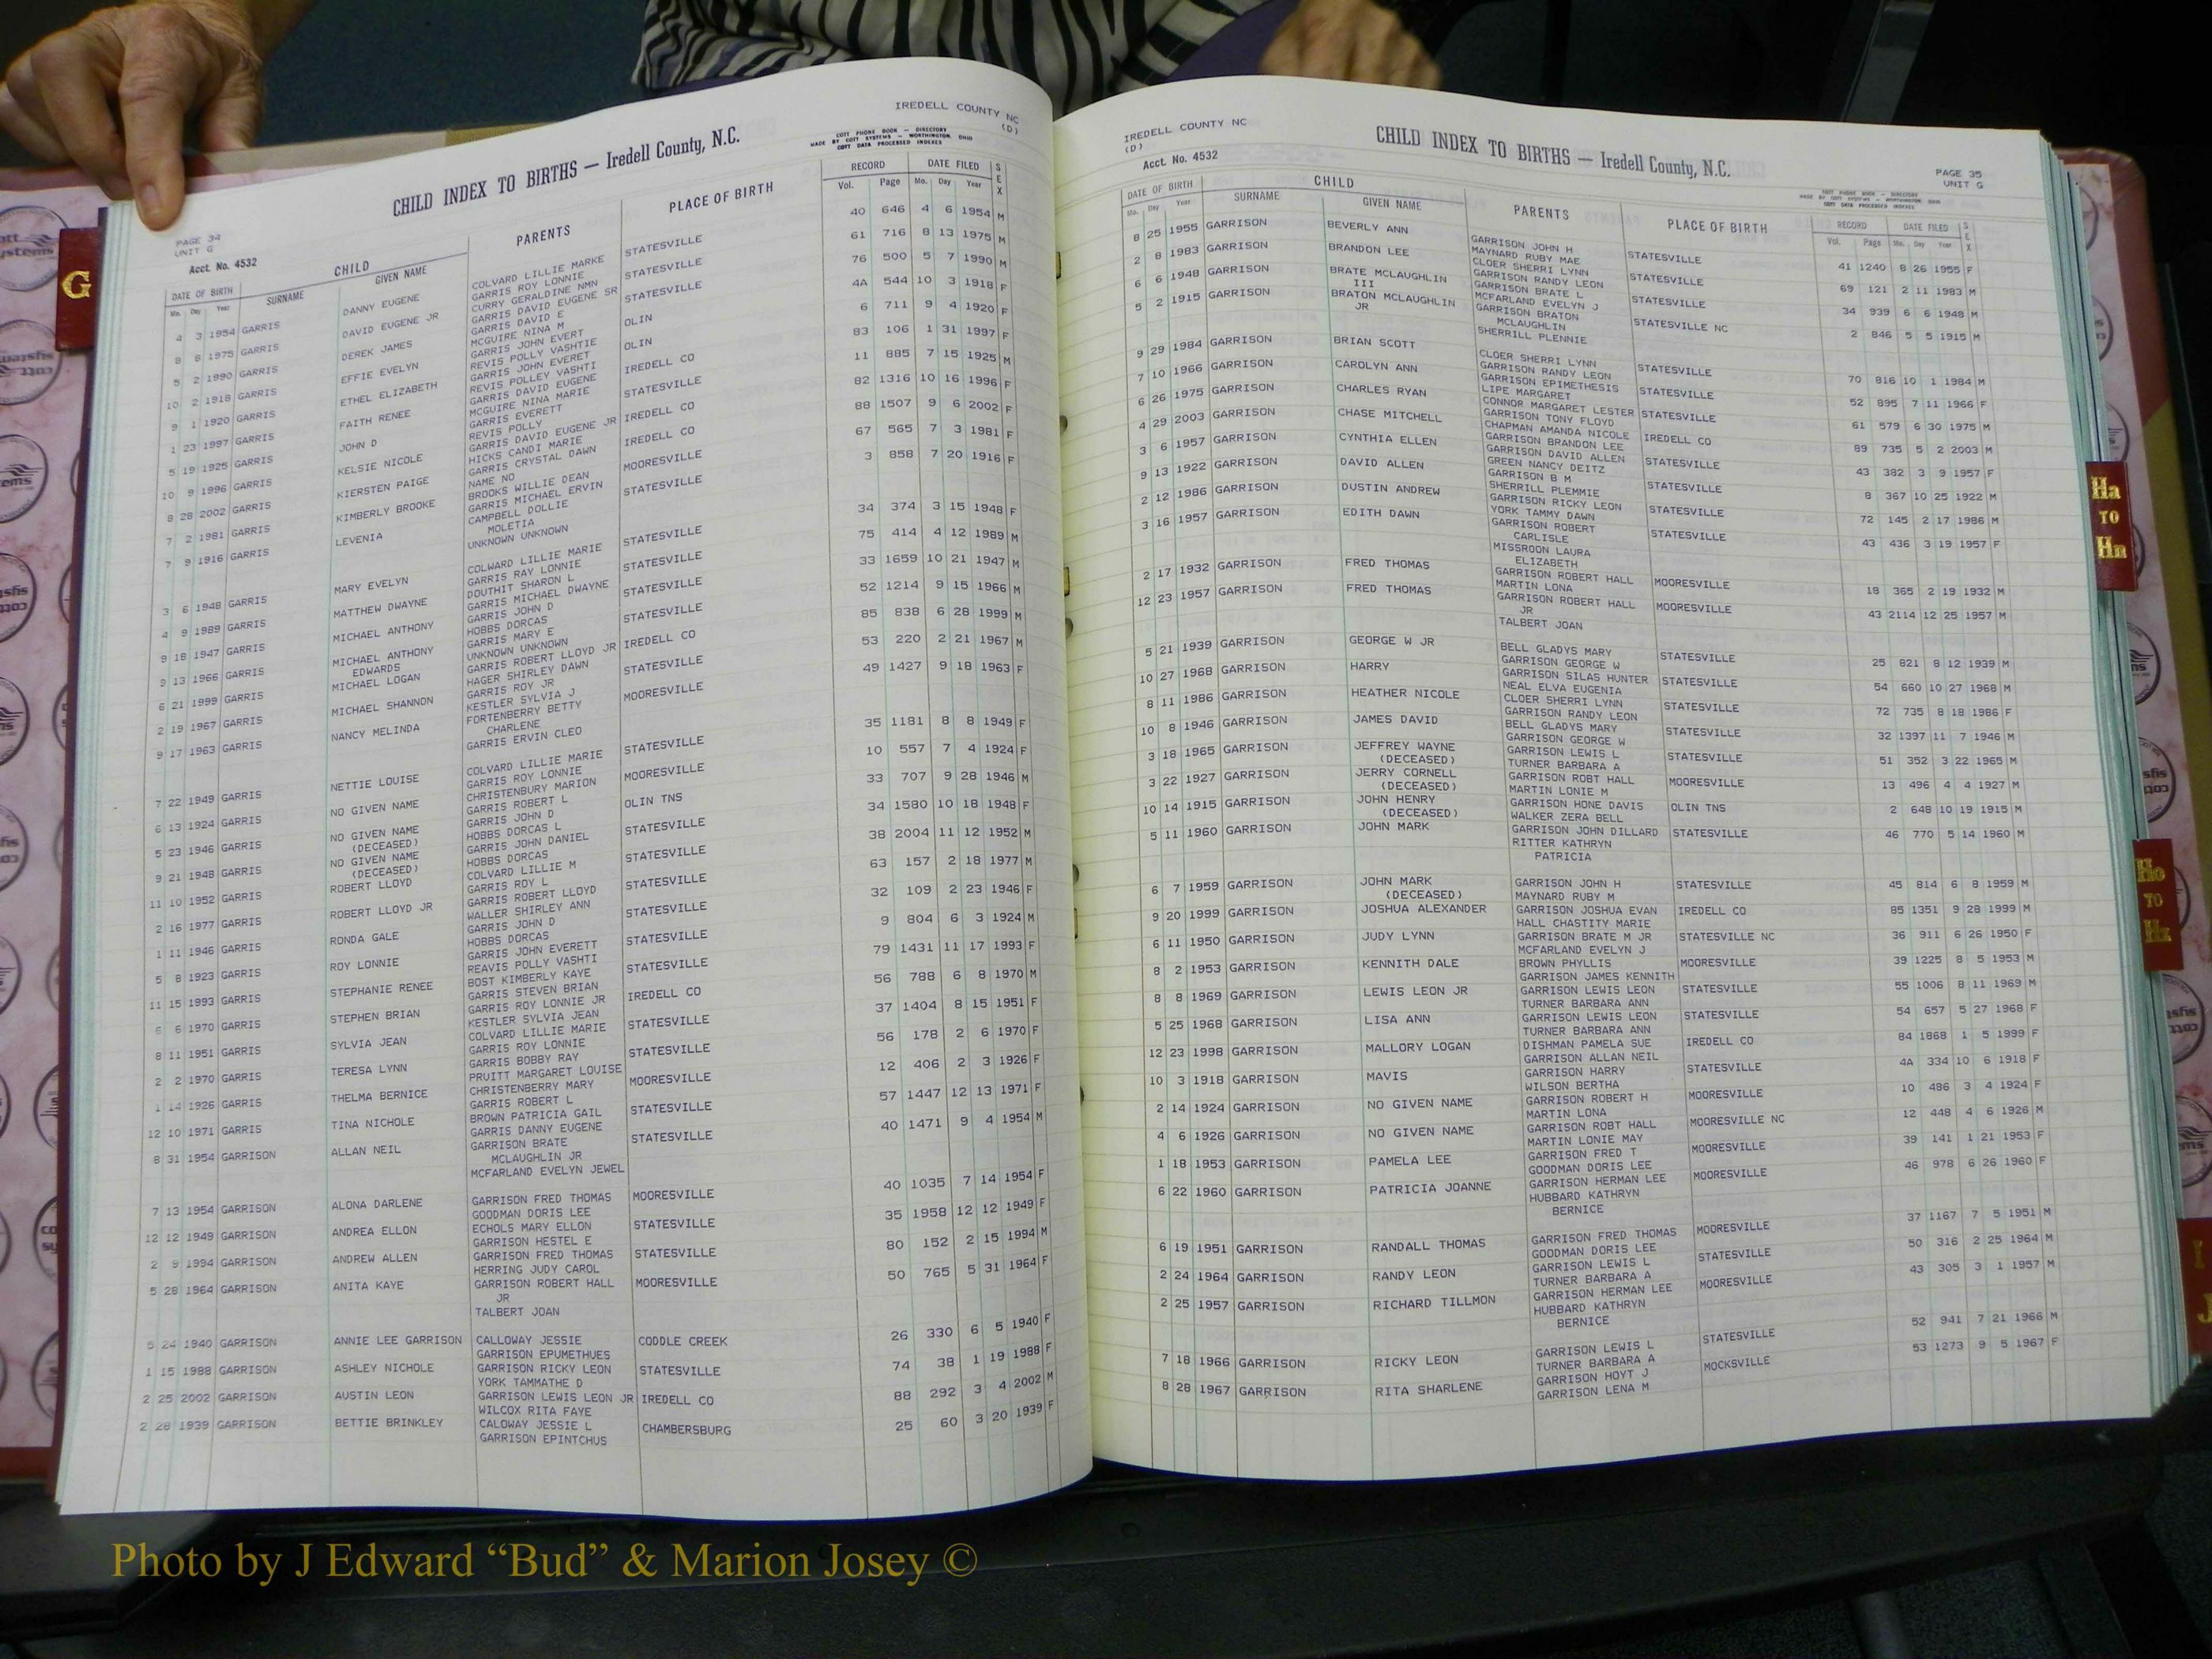 IREDELL COUNTY NC
(D)
CHILD INDEX TO BIRTHS — Iredell County, N.C.
COTT PHONE BOOK — DIRECTORY
MADE BY COTT SYSTEMS — WORTHINGTON, OHIO
COTT DATA PROCESSED INDEXES
PAGE 34
UNIT G
Acct. No. 4532
DATE OF BIRTH CHILD PARENTS PLACE OF BIRTH RECORD DATE FILED SEX
Mo. Day Year SURNAME GIVEN NAME Vol. Page Mo. Day Year
4 3 1954 GARRIS DANNY EUGENE COLVARD LILLIE MARKE STATESVILLE 40 646 4 6 1954 M
GARRIS ROY LONNIE
8 8 1975 GARRIS DAVID EUGENE JR CURRY GERALDINE NMN STATESVILLE 61 716 8 13 1975 M
GARRIS DAVID EUGENE SR
5 2 1990 GARRIS DEREK JAMES GARRIS DAVID E STATESVILLE 76 500 5 7 1990 M
MCGUIRE NINA M
10 2 1918 GARRIS EFFIE EVELYN GARRIS JOHN EVERT OLIN 4A 544 10 3 1918 F
REVIS POLLY VASHTIE
9 1 1920 GARRIS ETHEL ELIZABETH GARRIS JOHN EVERET OLIN 6 711 9 4 1920 F
REVIS POLLEY VASHTI
1 23 1997 GARRIS FAITH RENEE GARRIS DAVID EUGENE IREDELL CO 83 106 1 31 1997 F
MCGUIRE NINA MARIE
5 19 1925 GARRIS JOHN D GARRIS EVERETT STATESVILLE 11 885 7 15 1925 M
REVIS POLLY
10 9 1996 GARRIS KELSIE NICOLE GARRIS DAVID EUGENE JR IREDELL CO 82 1316 10 16 1996 F
HICKS CANDI MARIE
8 28 2002 GARRIS KIERSTEN PAIGE GARRIS CRYSTAL DAWN IREDELL CO 88 1507 9 6 2002 F
NAME NO
7 2 1981 GARRIS KIMBERLY BROOKE BROOKS WILLIE DEAN MOORESVILLE 67 565 7 3 1981 F
GARRIS MICHAEL ERVIN
7 9 1916 GARRIS LEVENIA CAMPBELL DOLLIE STATESVILLE 3 858 7 20 1916 F
MOLETIA
UNKNOWN UNKNOWN
3 6 1948 GARRIS MARY EVELYN COLWARD LILLIE MARIE STATESVILLE 34 374 3 15 1948 F
GARRIS RAY LONNIE
4 9 1989 GARRIS MATTHEW DWAYNE DOUTHIT SHARON L STATESVILLE 75 414 4 12 1989 M
GARRIS MICHAEL DWAYNE
9 18 1947 GARRIS MICHAEL ANTHONY GARRIS JOHN D STATESVILLE 33 1659 10 21 1947 M
HOBBS DORCAS
9 13 1966 GARRIS MICHAEL ANTHONY GARRIS MARY E STATESVILLE 52 1214 9 15 1966 M
EDWARDS UNKNOWN UNKNOWN
6 21 1999 GARRIS MICHAEL LOGAN GARRIS ROBERT LLOYD JR IREDELL CO 85 838 6 28 1999 M
HAGER SHIRLEY DAWN
2 19 1967 GARRIS MICHAEL SHANNON GARRIS ROY JR STATESVILLE 53 220 2 21 1967 M
KESTLER SYLVIA J
9 17 1963 GARRIS NANCY MELINDA FORTENBERRY BETTY MOORESVILLE 49 1427 9 18 1963 F
CHARLENE
GARRIS ERVIN CLEO
7 22 1949 GARRIS NETTIE LOUISE COLVARD LILLIE MARIE STATESVILLE 35 1181 8 8 1949 F
GARRIS ROY LONNIE
6 13 1924 GARRIS NO GIVEN NAME CHRISTENBURY MARION MOORESVILLE 10 557 7 4 1924 F
GARRIS ROBERT L
5 23 1946 GARRIS NO GIVEN NAME GARRIS JOHN D OLIN TNS 33 707 9 28 1946 M
(DECEASED) HOBBS DORCAS L
9 21 1948 GARRIS NO GIVEN NAME GARRIS JOHN DANIEL STATESVILLE 34 1580 10 18 1948 F
(DECEASED) HOBBS DORCAS
11 10 1952 GARRIS ROBERT LLOYD COLVARD LILLIE M STATESVILLE 38 2004 11 12 1952 M
GARRIS ROY L
2 16 1977 GARRIS ROBERT LLOYD JR GARRIS ROBERT LLOYD STATESVILLE 63 157 2 18 1977 M
WALLER SHIRLEY ANN
1 11 1946 GARRIS RONDA GALE GARRIS JOHN D STATESVILLE 32 109 2 23 1946 F
HOBBS DORCAS
5 8 1923 GARRIS ROY LONNIE GARRIS JOHN EVERETT STATESVILLE 9 804 6 3 1924 M
REAVIS POLLY VASHTI
11 15 1993 GARRIS STEPHANIE RENEE BOST KIMBERLY KAYE STATESVILLE 79 1431 11 17 1993 F
GARRIS STEVEN BRIAN
6 6 1970 GARRIS STEPHEN BRIAN GARRIS ROY LONNIE JR IREDELL CO 56 788 6 8 1970 M
KESTLER SYLVIA JEAN
8 11 1951 GARRIS SYLVIA JEAN COLVARD LILLIE MARIE STATESVILLE 37 1404 8 15 1951 F
GARRIS ROY LONNIE
2 2 1970 GARRIS TERESA LYNN GARRIS BOBBY RAY STATESVILLE 56 178 2 6 1970 F
PRUITT MARGARET LOUISE
1 14 1926 GARRIS THELMA BERNICE CHRISTENBERRY MARY MOORESVILLE 12 406 2 3 1926 F
GARRIS ROBERT L
12 10 1971 GARRIS TINA NICHOLE BROWN PATRICIA GAIL STATESVILLE 57 1447 12 13 1971 F
GARRIS DANNY EUGENE
8 31 1954 GARRISON ALLAN NEIL GARRISON BRATE STATESVILLE 40 1471 9 4 1954 M
MCLAUGHLIN JR
MCFARLAND EVELYN JEWEL
7 13 1954 GARRISON ALONA DARLENE GARRISON FRED THOMAS MOORESVILLE 40 1035 7 14 1954 F
GOODMAN DORIS LEE
12 12 1949 GARRISON ANDREA ELLON ECHOLS MARY ELLON STATESVILLE 35 1958 12 12 1949 F
GARRISON HESTEL E
2 9 1994 GARRISON ANDREW ALLEN GARRISON FRED THOMAS STATESVILLE 80 152 2 15 1994 M
HERRING JUDY CAROL
5 28 1964 GARRISON ANITA KAYE GARRISON ROBERT HALL MOORESVILLE 50 765 5 31 1964 F
JR
TALBERT JOAN
5 24 1940 GARRISON ANNIE LEE GARRISON CALLOWAY JESSIE CODDLE CREEK 26 330 6 5 1940 F
GARRISON EPUMETHUES
1 15 1988 GARRISON ASHLEY NICHOLE GARRISON RICKY LEON STATESVILLE 74 38 1 19 1988 F
YORK TAMMATHE D
2 25 2002 GARRISON AUSTIN LEON GARRISON LEWIS LEON JR IREDELL CO 88 292 3 4 2002 M
WILCOX RITA FAYE
2 28 1939 GARRISON BETTIE BRINKLEY CALOWAY JESSIE L CHAMBERSBURG 25 60 3 20 1939 F
GARRISON EPINTCHUS
IREDELL COUNTY NC
(D)
Acct. No. 4532
CHILD INDEX TO BIRTHS — Iredell County, N.C.
PAGE 35
UNIT G
COTT PHONE BOOK — DIRECTORY
MADE BY COTT SYSTEMS — WORTHINGTON, OHIO
COTT DATA PROCESSED INDEXES
DATE OF BIRTH CHILD PARENTS PLACE OF BIRTH RECORD DATE FILED SEX
Mo. Day Year SURNAME GIVEN NAME Vol. Page Mo. Day Year
8 25 1955 GARRISON BEVERLY ANN GARRISON JOHN H STATESVILLE 41 1240 8 26 1955 F
MAYNARD RUBY MAE
2 8 1983 GARRISON BRANDON LEE CLOER SHERRI LYNN STATESVILLE 69 121 2 11 1983 M
GARRISON RANDY LEON
6 6 1948 GARRISON BRATE MCLAUGHLIN GARRISON BRATE L STATESVILLE 34 939 6 6 1948 M
III MCFARLAND EVELYN J
5 2 1915 GARRISON BRATON MCLAUGHLIN GARRISON BRATON STATESVILLE NC 2 846 5 5 1915 M
JR MCLAUGHLIN
SHERRILL PLENNIE
9 29 1984 GARRISON BRIAN SCOTT CLOER SHERRI LYNN STATESVILLE 70 816 10 1 1984 M
GARRISON RANDY LEON
7 10 1966 GARRISON CAROLYN ANN GARRISON EPIMETHESIS STATESVILLE 52 895 7 11 1966 F
LIPE MARGARET
6 26 1975 GARRISON CHARLES RYAN CONNOR MARGARET LESTER STATESVILLE 61 579 6 30 1975 M
GARRISON TONY FLOYD
4 29 2003 GARRISON CHASE MITCHELL CHAPMAN AMANDA NICOLE IREDELL CO 89 735 5 2 2003 M
GARRISON BRANDON LEE
3 6 1957 GARRISON CYNTHIA ELLEN GARRISON DAVID ALLEN STATESVILLE 43 382 3 9 1957 F
GREEN NANCY DEITZ
9 13 1922 GARRISON DAVID ALLEN GARRISON B M STATESVILLE 8 367 10 25 1922 M
SHERRILL PLEMMIE
2 12 1986 GARRISON DUSTIN ANDREW GARRISON RICKY LEON STATESVILLE 72 145 2 17 1986 M
YORK TAMMY DAWN
3 16 1957 GARRISON EDITH DAWN GARRISON ROBERT STATESVILLE 43 436 3 19 1957 F
CARLISLE
MISSROON LAURA
ELIZABETH
2 17 1932 GARRISON FRED THOMAS GARRISON ROBERT HALL MOORESVILLE 18 365 2 19 1932 M
MARTIN LONA
12 23 1957 GARRISON FRED THOMAS GARRISON ROBERT HALL MOORESVILLE 43 2114 12 25 1957 M
JR
TALBERT JOAN
5 21 1939 GARRISON GEORGE W JR BELL GLADYS MARY STATESVILLE 25 821 8 12 1939 M
GARRISON GEORGE W
10 27 1968 GARRISON HARRY GARRISON SILAS HUNTER STATESVILLE 54 660 10 27 1968 M
NEAL ELVA EUGENIA
8 11 1986 GARRISON HEATHER NICOLE CLOER SHERRI LYNN STATESVILLE 72 735 8 18 1986 F
GARRISON RANDY LEON
10 8 1946 GARRISON JAMES DAVID BELL GLADYS MARY STATESVILLE 32 1397 11 7 1946 M
GARRISON GEORGE W
3 18 1965 GARRISON JEFFREY WAYNE GARRISON LEWIS L STATESVILLE 51 352 3 22 1965 M
(DECEASED) TURNER BARBARA A
3 22 1927 GARRISON JERRY CORNELL GARRISON ROBT HALL MOORESVILLE 13 496 4 4 1927 M
(DECEASED) MARTIN LONIE M
10 14 1915 GARRISON JOHN HENRY GARRISON HONE DAVIS OLIN TNS 2 648 10 19 1915 M
(DECEASED) WALKER ZERA BELL
5 11 1960 GARRISON JOHN MARK GARRISON JOHN DILLARD STATESVILLE 46 770 5 14 1960 M
RITTER KATHRYN
PATRICIA
6 7 1959 GARRISON JOHN MARK GARRISON JOHN H STATESVILLE 45 814 6 8 1959 M
(DECEASED) MAYNARD RUBY M
9 20 1999 GARRISON JOSHUA ALEXANDER GARRISON JOSHUA EVAN IREDELL CO 85 1351 9 28 1999 M
HALL CHASTITY MARIE
6 11 1950 GARRISON JUDY LYNN GARRISON BRATE M JR STATESVILLE NC 36 911 6 26 1950 F
MCFARLAND EVELYN J
8 2 1953 GARRISON KENNITH DALE BROWN PHYLLIS MOORESVILLE 39 1225 8 5 1953 M
GARRISON JAMES KENNITH
8 8 1969 GARRISON LEWIS LEON JR GARRISON LEWIS LEON STATESVILLE 55 1006 8 11 1969 M
TURNER BARBARA ANN
5 25 1968 GARRISON LISA ANN GARRISON LEWIS LEON STATESVILLE 54 657 5 27 1968 F
TURNER BARBARA ANN
12 23 1998 GARRISON MALLORY LOGAN DISHMAN PAMELA SUE IREDELL CO 84 1868 1 5 1999 F
GARRISON ALLAN NEIL
10 3 1918 GARRISON MAVIS GARRISON HARRY STATESVILLE 4A 334 10 6 1918 F
WILSON BERTHA
2 14 1924 GARRISON NO GIVEN NAME GARRISON ROBERT H MOORESVILLE 10 486 3 4 1924 F
MARTIN LONA
4 6 1926 GARRISON NO GIVEN NAME GARRISON ROBT HALL MOORESVILLE NC 12 448 4 6 1926 M
MARTIN LONIE MAY
1 18 1953 GARRISON PAMELA LEE GARRISON FRED T MOORESVILLE 39 141 1 21 1953 F
GOODMAN DORIS LEE
6 22 1960 GARRISON PATRICIA JOANNE GARRISON HERMAN LEE MOORESVILLE 46 978 6 26 1960 F
HUBBARD KATHRYN
BERNICE
6 19 1951 GARRISON RANDALL THOMAS GARRISON FRED THOMAS MOORESVILLE 37 1167 7 5 1951 M
GOODMAN DORIS LEE
2 24 1964 GARRISON RANDY LEON GARRISON LEWIS L STATESVILLE 50 316 2 25 1964 M
TURNER BARBARA A
2 25 1957 GARRISON RICHARD TILLMON GARRISON HERMAN LEE MOORESVILLE 43 305 3 1 1957 M
HUBBARD KATHRYN
BERNICE
7 18 1966 GARRISON RICKY LEON GARRISON LEWIS L STATESVILLE 52 941 7 21 1966 M
TURNER BARBARA A
8 28 1967 GARRISON RITA SHARLENE GARRISON HOYT J MOCKSVILLE 53 1273 9 5 1967 F
GARRISON LENA M
G
Ha
TO
Hn
Ho
TO
Hz
I
J
Photo by J Edward “Bud” & Marion Josey ©